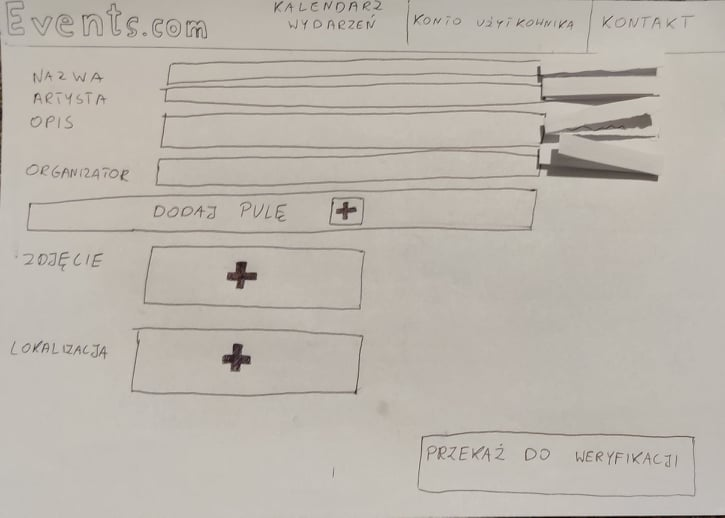 Events.com
KALENDARZ
WYDARZEŃ
KONTO UŻYTKOWNIKA
KONTAKT
NAZWA
ARTYSTA
OPIS
ORGANIZATOR
DODAJ PULĘ
ZDJĘCIE
LOKALIZACJA
PRZEKAŻ DO WERYFIKACJI